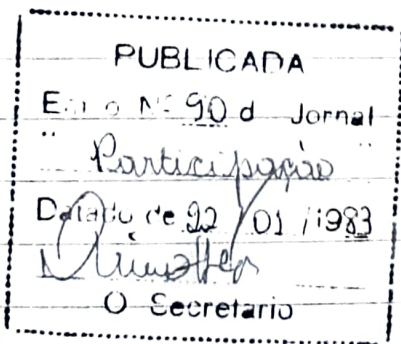 PUBLICADA
Nº 90 d Jornal
"Participação"
Datado de 22 / 01 / 1983
O Secretario